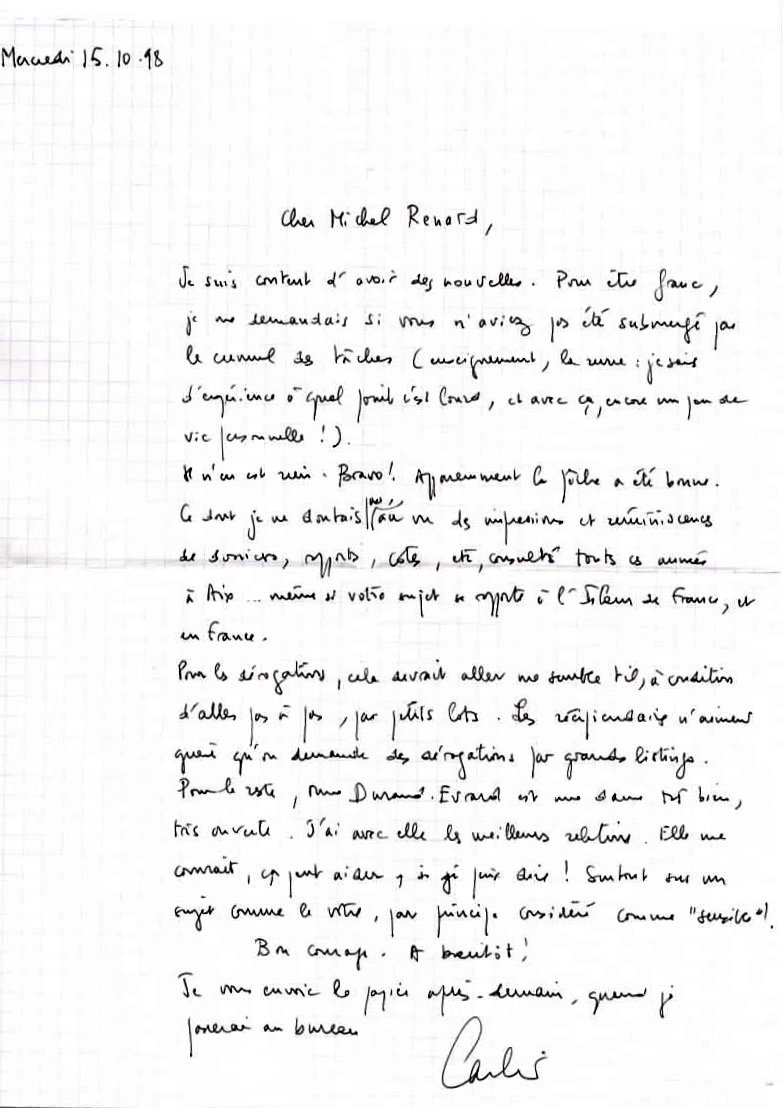 Mercredi 15.10.98
Cher Michel Renard,
Je suis content d'avoir des nouvelles. Pour être franc,
je me demandais si vous n'aviez pas été submergé par
le cumul des tâches (enseignement, la revue : je sais
d'expérience à quel point c'est lourd, et avec ça, encore un peu de
vie personnelle !).
Il n'en est rien. Bravo ! Apparemment la pêche a été bonne.
Ce dont je me doutais au vu des impressions et réminiscences
de dossiers, rapports, cotes, etc, consultés toutes ces années
à Aix ... même si votre sujet se rapporte à l'Islam de France, et
en France.
Pour les dérogations, cela devrait aller me semble t-il, à condition
d'aller pas à pas, par petits lots. Les récipiendaires n'aiment
guère qu'on demande des dérogations par grands listings.
Pour le reste, Mme Durand-Evrard est une dame très bien,
très ouverte. J'ai avec elle les meilleures relations. Elle me
connait, ça peut aider, si je puis dire ! Surtout sur un
sujet comme le vôtre, par principe considéré comme "sensible" !
Bon courage. A bientôt !
Je vous envoie le papier après-demain, quand je
passerai au bureau